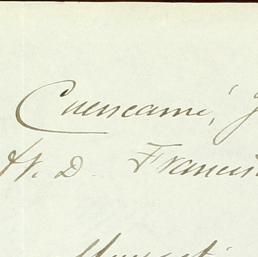 Cuencamé,
Sr. D. Francis